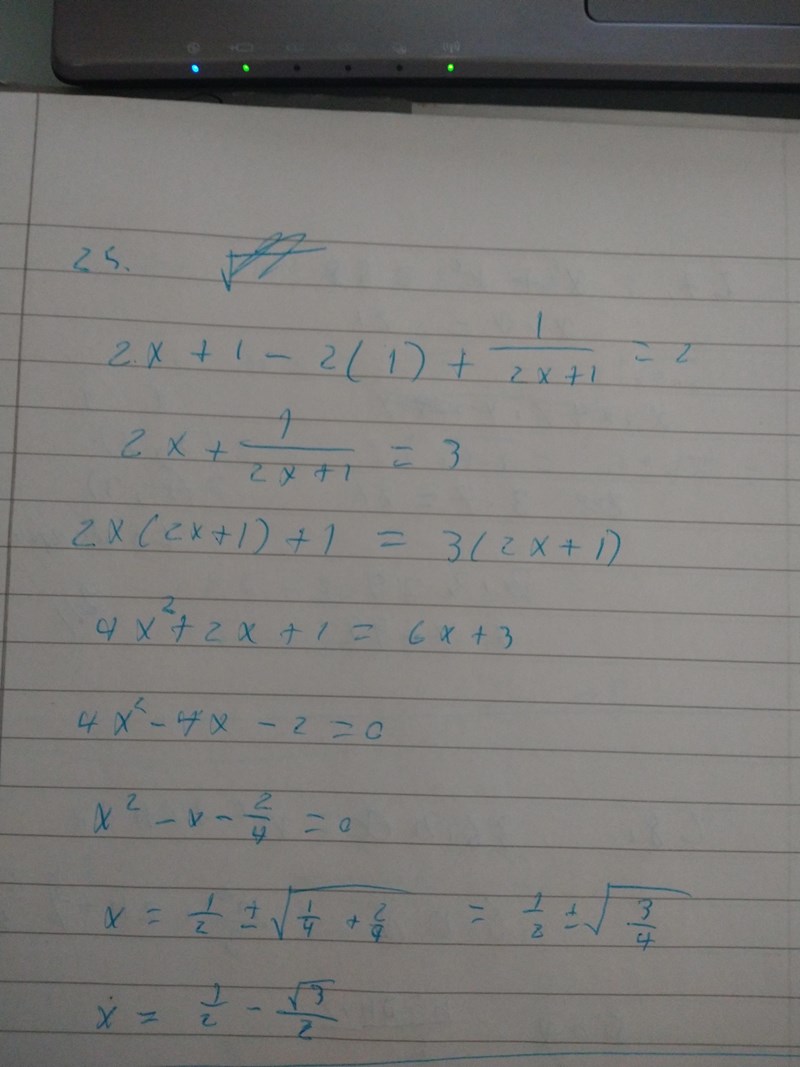 25.
2x + 1 - 2(1) + 1/(2x+1) = 2
2x + 1/(2x+1) = 3
2x(2x+1) + 1 = 3(2x+1)
4x² + 2x + 1 = 6x + 3
4x² - 4x - 2 = 0
x² - x - 2/4 = 0
x = 1/2 ± √(1/4 + 2/4) = 1/2 ± √(3/4)
x = 1/2 - √3/2